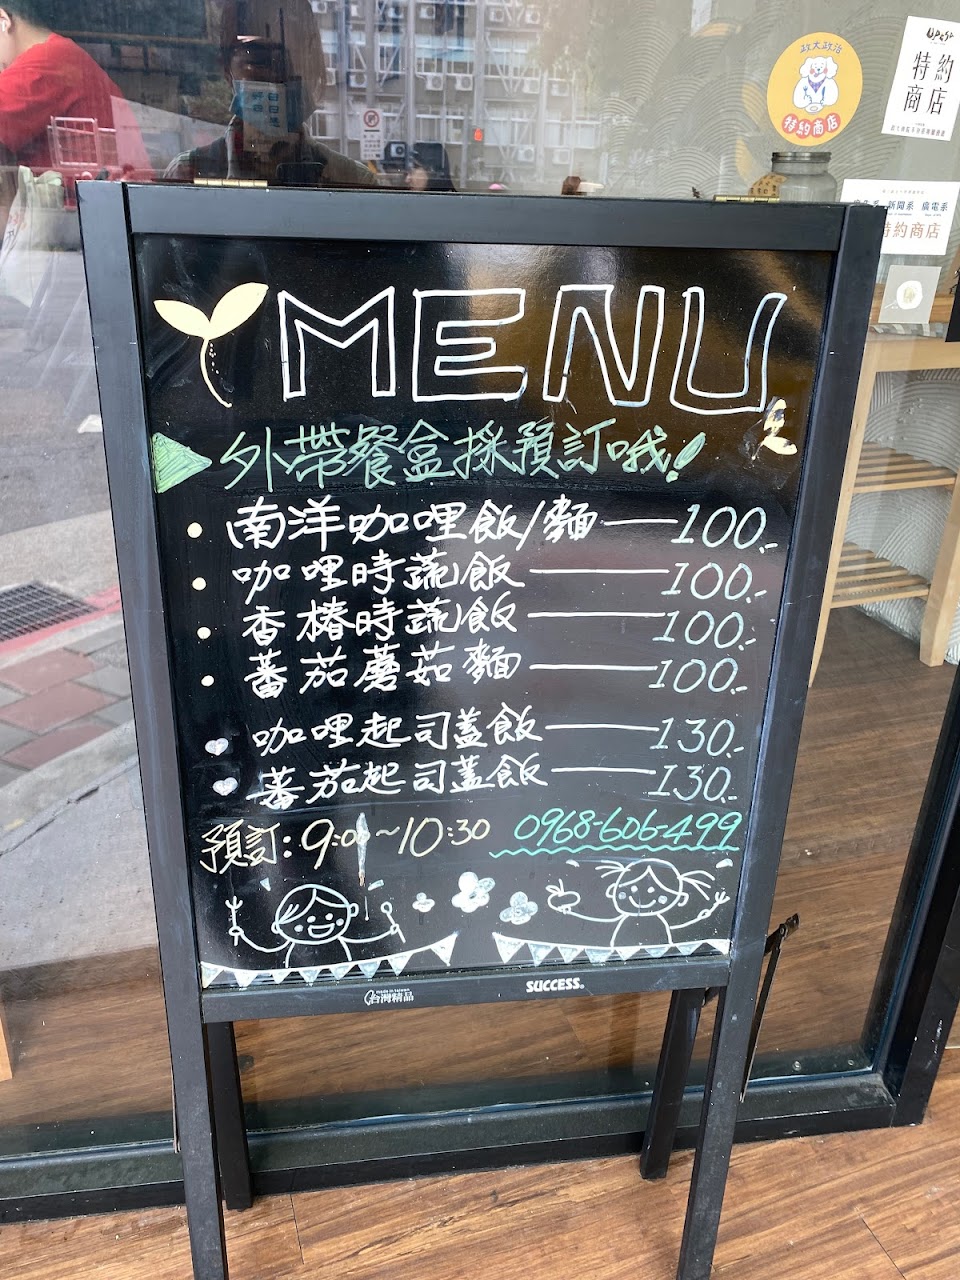 政大政治
特約商店
特約
商店
新聞系 廣電系
特約商店
MENU
外帶餐盒採預訂哦!
南洋咖哩飯/麵——100.-
咖哩時蔬飯——100.-
香椿時蔬飯——100.-
蕃茄蘑菇麵——100.-
咖哩起司蓋飯——130.-
蕃茄起司蓋飯——130.-
預訂:9:00~10:30 0968-606-499
made in taiwan
台灣精品
SUCCESS